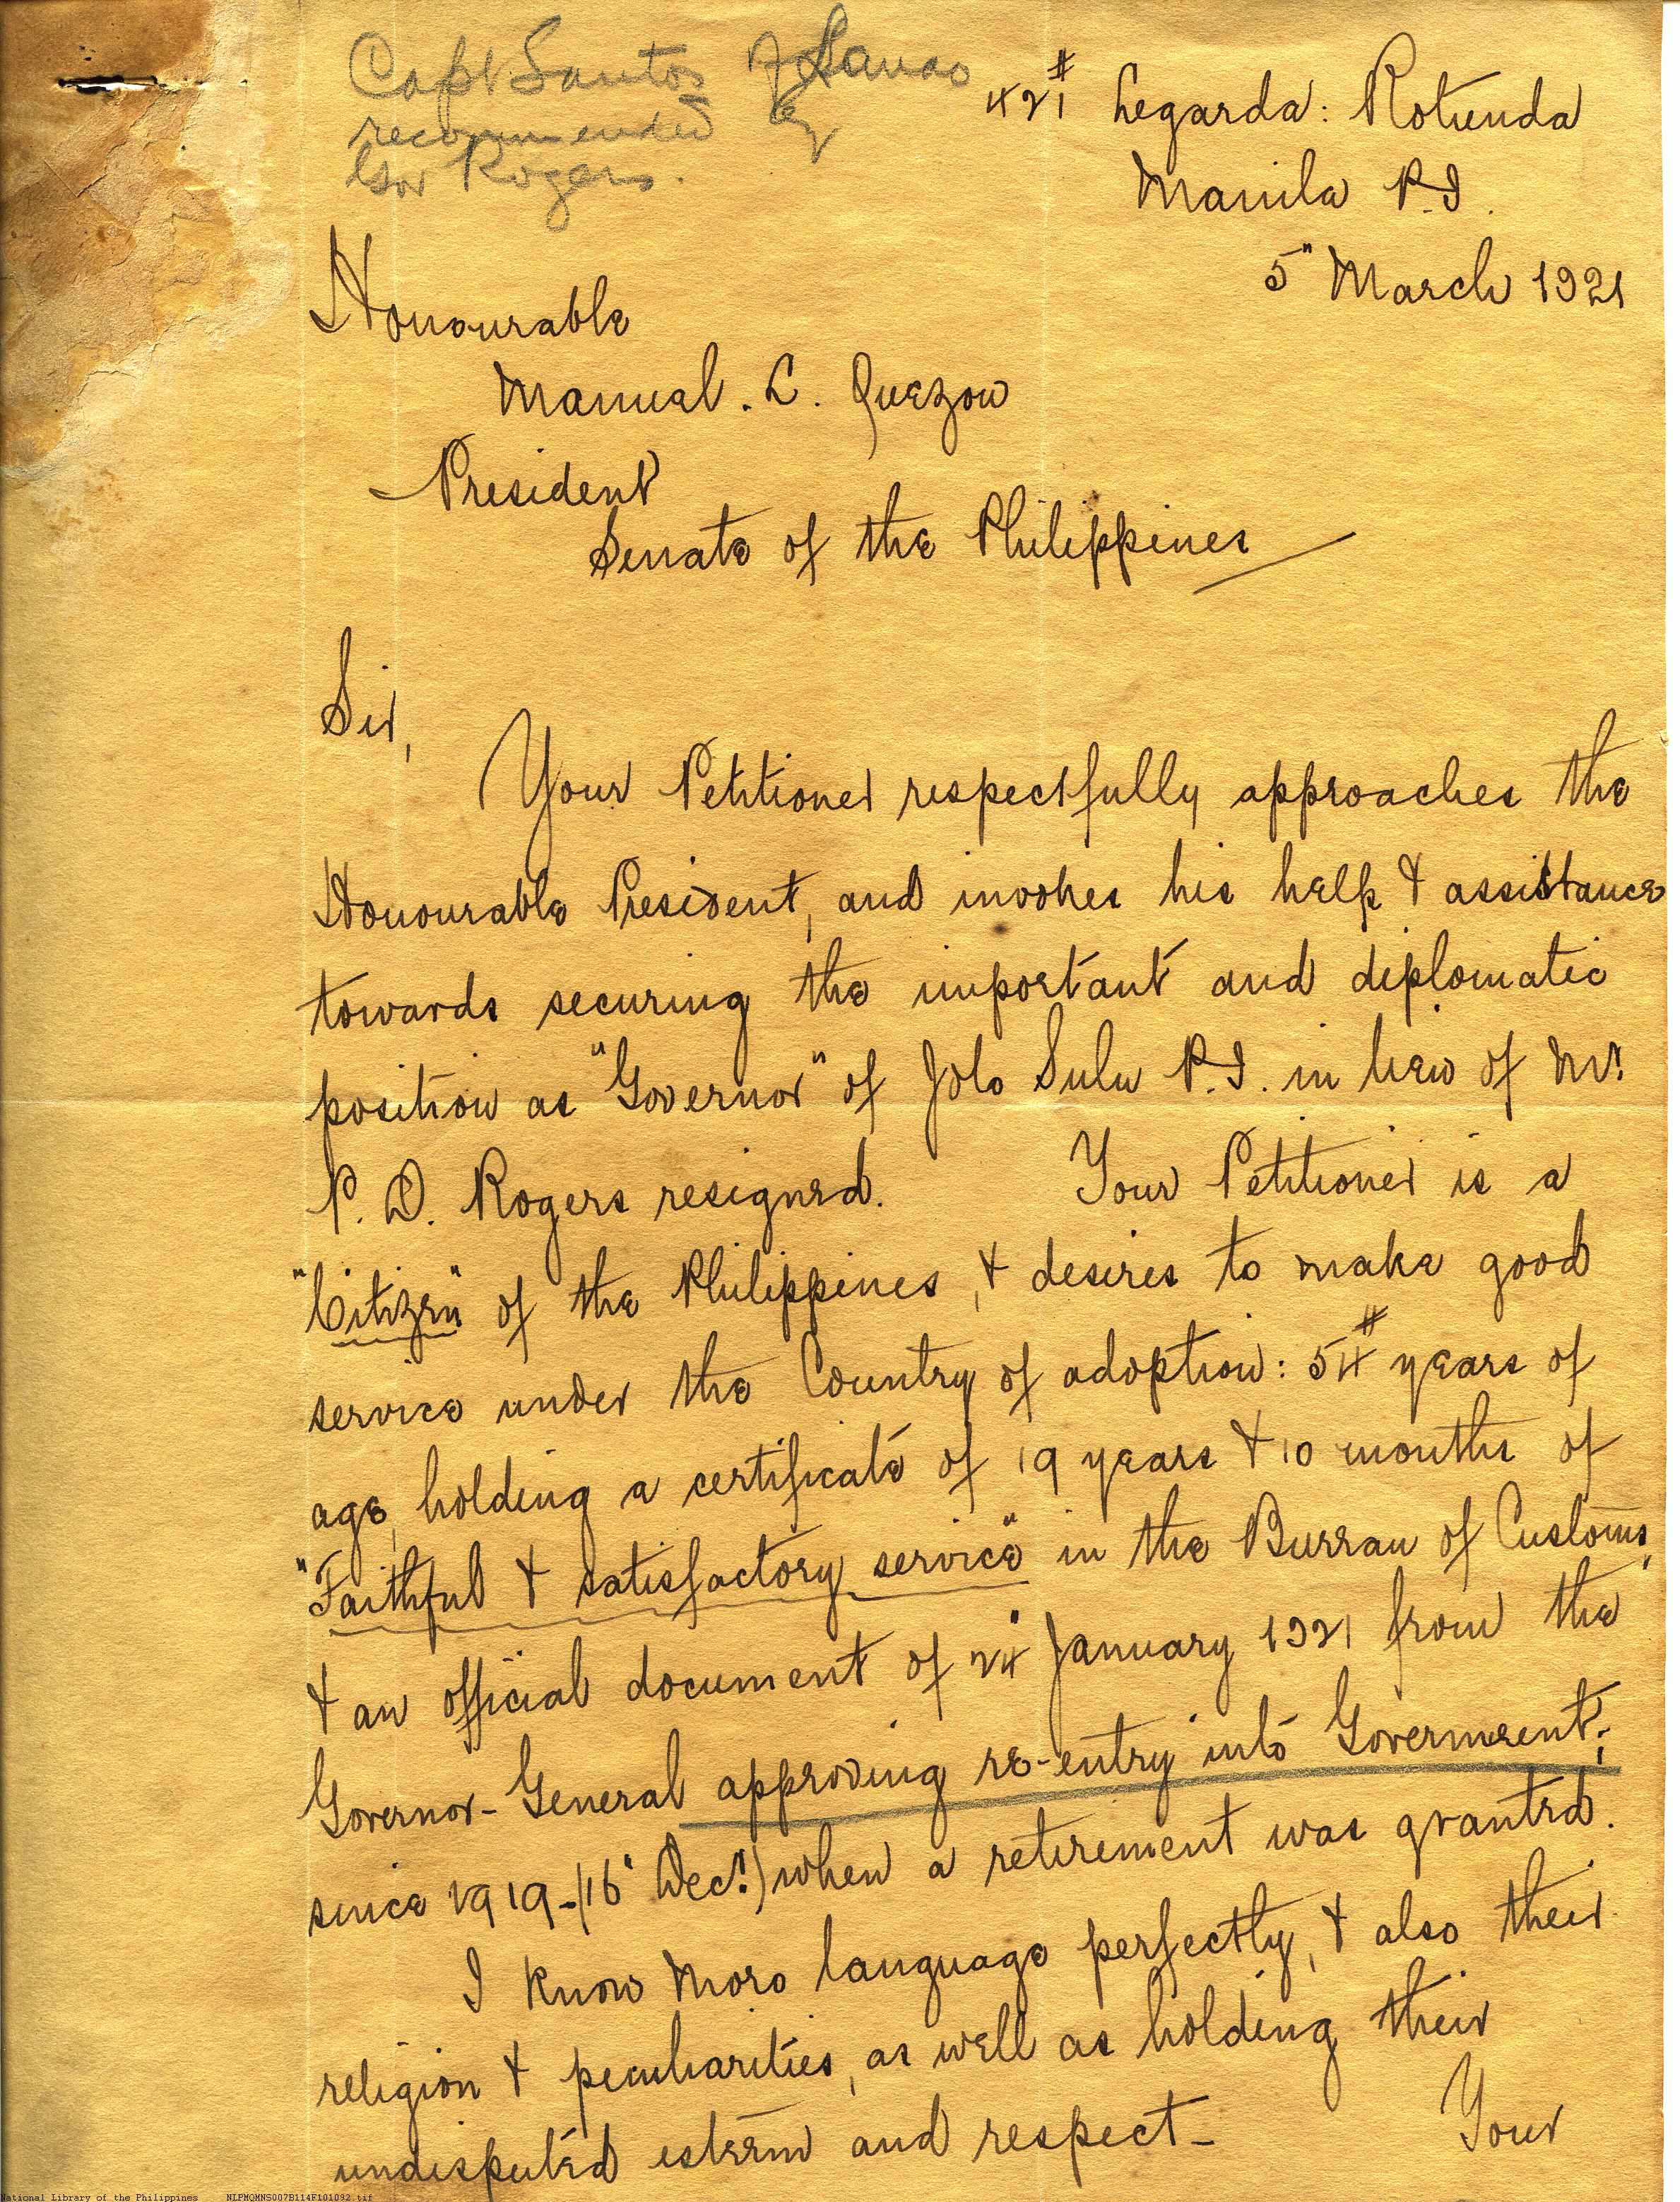 Capt Santos of Lanao
recommended by
Gov Rogers.
421# Legarda: Rotunda
Manila P.I.
5" March 1921
Honourable
Manual. L. Quezon
President
Senate of the Philippines
Sir,
Your Petitioner respectfully approaches the
Honourable President, and invokes his help & assistance
towards securing the important and diplomatic
position as "Governor" of Jolo Sulu P.I. in liew of Mr.
P. D. Rogers resigned. Your Petitioner is a
"Citizen" of the Philippines, & desires to make good
service under the Country of adoption: 54# years of
age, holding a certificate of 19 years & 10 months of
"Faithful & satisfactory service" in the Bureau of Customs,
& an official document of 24" January 1921 from the
Governor-General approving re-entry into Government;
since 1919-(16" Dec.) when a retirement was granted.
I know Moro language perfectly, & also their
religion & peculiarities, as well as holding their
undisputed esteem and respect- Your
National Library of the Philippines NLPMQMNS007B114F101092.tif